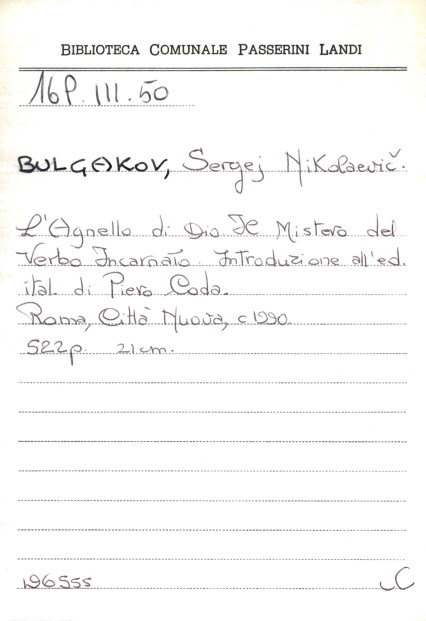 BIBLIOTECA COMUNALE PASSERINI LANDI
16P.III.50
BULGAKOV, Sergej Nikolaevič.
L'Agnello di Dio Il Mistero del
Verbo Incarnato. Introduzione all'ed.
ital. di Piero Coda.
Roma, Città Nuova, c1990.
522p. 21cm.
196555